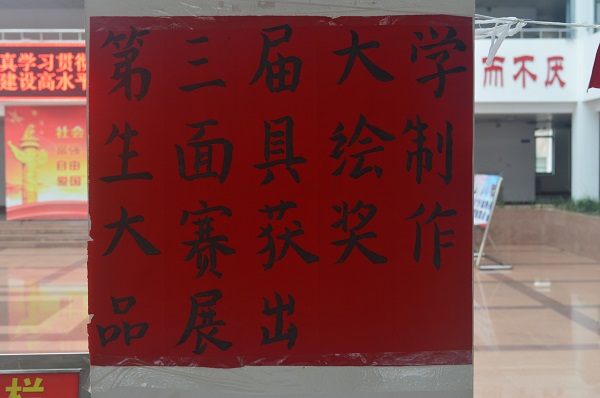 第三届大学
生面具绘制
大赛获奖作
品展出
真学习贯彻
建设高水平
而不厌
社会
自由
爱国
栏